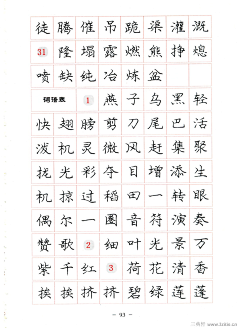 徒腾催吊跪渠灌溉
31隆塌露燃熊挣熄
喷缺纯冶炼盆
词语表1燕子乌黑轻
快翅膀剪刀尾巴活
泼机灵微风赶集聚
拢光彩夺目增添生
机掠过稻田一转眼
偶尔一圈音符演奏
赞歌2细叶光景万
紫千红3荷花清香
挨挨挤挤碧绿莲蓬
- 93 -